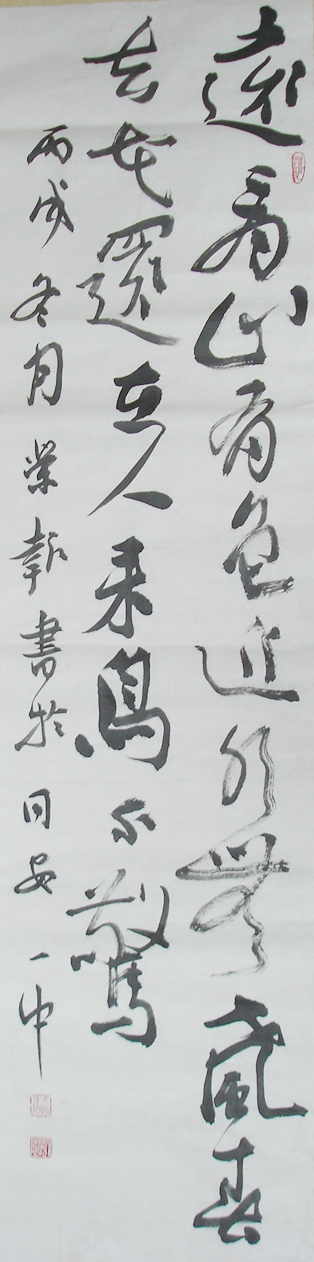 遠看山有色近水無風春
去花還在人來鳥不驚
丙戌冬月榮報書於同安一中